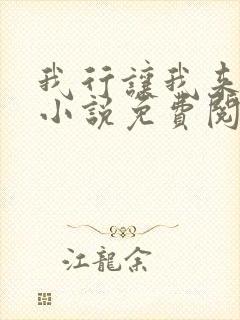 我行讓我来
小說免費閱
江龍余